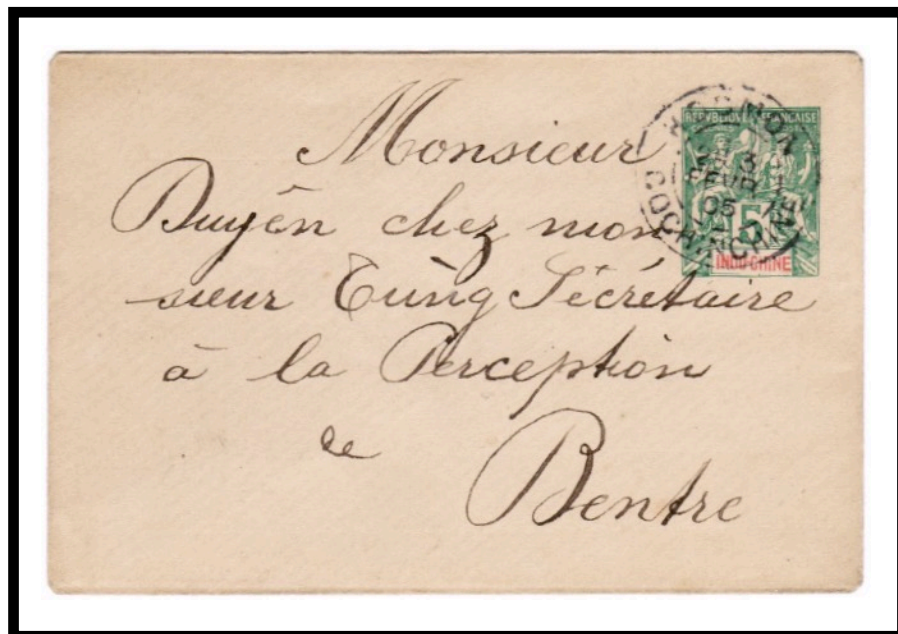 Monsieur
Duyên chez mon
sieur Tùng Sécrétaire
à la Perception
de
Bentre
REPVBLIQUE FRANÇAISE
5
INDO-CHINE
HOCMON
3
FEVR
05
COCHINCHINE